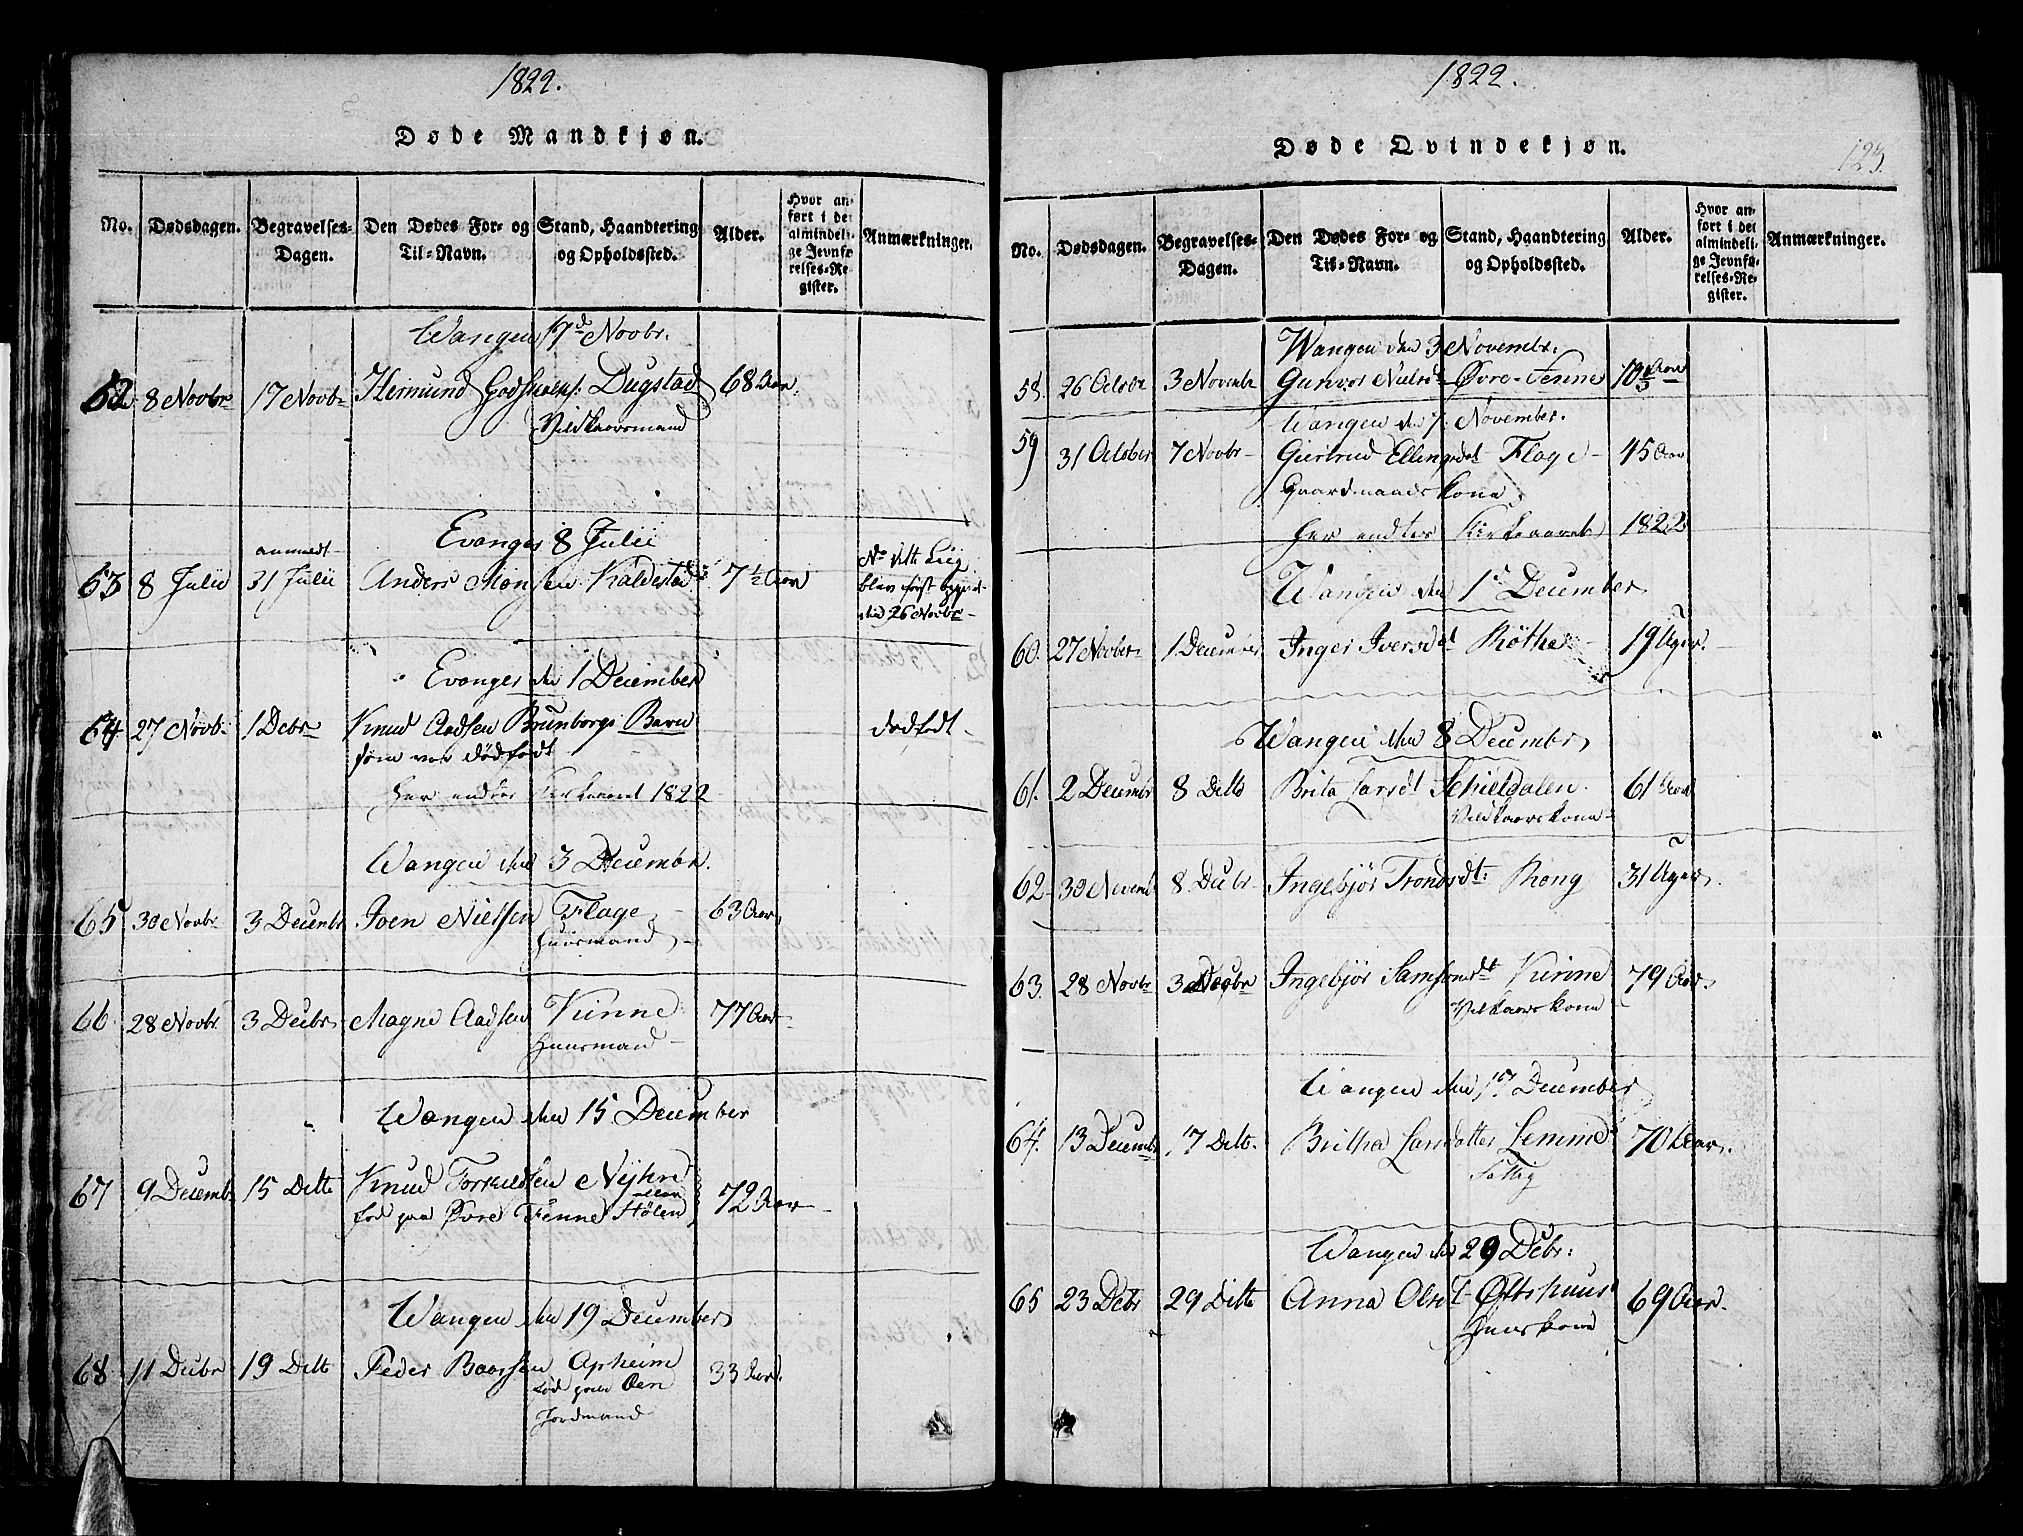 1822.
Døde Mandkjøn.
No. Dødsdagen. Begravelses-Dagen. Den Dødes For- og Til-Navn. Stand, Haandtering og Opholdssted. Alder. Hvor anført i det almindelige Jevnførelses-Register. Anmærkninger.
Wangen 17d Novbr.
62 8 Novbr 17 Novbr Hermund Dugstad 68 Aar.
Vilkaarsmand
Evanger 8 Julii
anmeldt
63 8 Julii 31 Julii Anders Monsen Kaldestad 7 1/2 Aar
blev først
den 26 Novbr
Evanger den 1 December
64 27 Novb. 1 Debr Knud Aadsen Brunborgs Barn dødfødt
som var dødfødt
Her ender Kirkeaaret 1822
Wangen den 3 Decembr.
65 30 Novbr 3 Decembr Joen Nielsen Flage 63 Aar
Huusmand
66. 28 Novbr. 3 Decbr Magne Aadsen Vinne 77 Aar
Huusmand
Wangen den 15 December
67 9 Decembr 15 Ditto Knud Torkieldsen Nyhre 72 Aar
fød paa Øvre Fenne Hølen
Wangen den 19 December
68 11 Decbr 19 Ditto Peder Baarsen Opheim 33 Aar.
fød paa Øen
Jordmand
1822.
Døde Qvindekjøn.
123.
No. Dødsdagen. Begravelses-Dagen. Den Dødes For- og Til-Navn. Stand, Haandtering og Opholdssted. Alder. Hvor anført i det almindelige Jevnførelses-Register. Anmærkninger.
Wangen den 3 Novembr.
58. 26 Octobr 3 Novembr Gunvor Nielsdt Øvre-Fenne Aar
Wangen den 7. November.
59 31 October 7 Novbr Giertrud Ellingsdat Flage 45 Aar
Gaardmandskone
Her endtes Kirkeaaret 1822
Wangen den 1d December
60. 27 Novbr 1 December Inger Iversdt Röthe 19 Uger.
Wangen den 8 Decembr
61. 2 Decembr 8 Ditto Brita Larsdt Schieldalen. 61 Aar
Vilkaarskone
62 30 Novemb 8 Decbr Ingebjør Trondsdt: Rong 31 Uger.
63. 28 Novbr 3 Decbr Ingebjør Samsonsdt Vinne 79 Aar
Vilkaarskone
Wangen den 17 December
64. 13 Decembr 17 Ditto Britha Larsdatter Lemme 70 Aar.
Fattig
Wangen den 29 Debr:
65 23 Debr 29 Ditto Anna Olsdt 69 Aar.
Huuskone